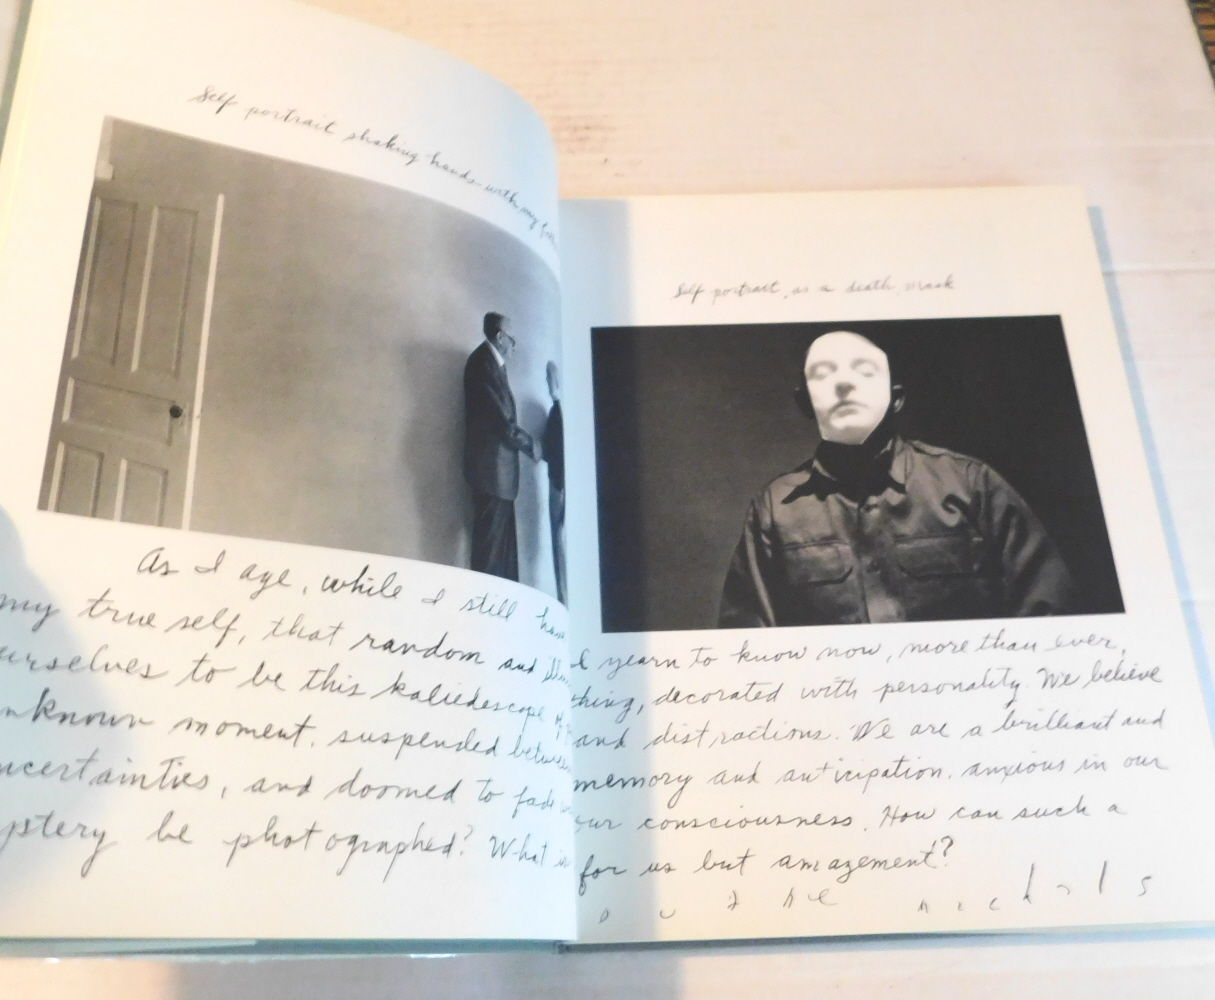 Self portrait shaking hands with my father
Self portrait, as a death mask
As I age, while I still have I yearn to know now, more than ever,
my true self, that random and thing, decorated with personality. We believe
urselves to be this kaliedescope of and distractions. We are a brilliant and
nknown moment, suspended between memory and anticipation, anxious in our
ncertainties, and doomed to fade our consciousness. How can such a
ystery be photographed? What is for us but amazement?
duane michals